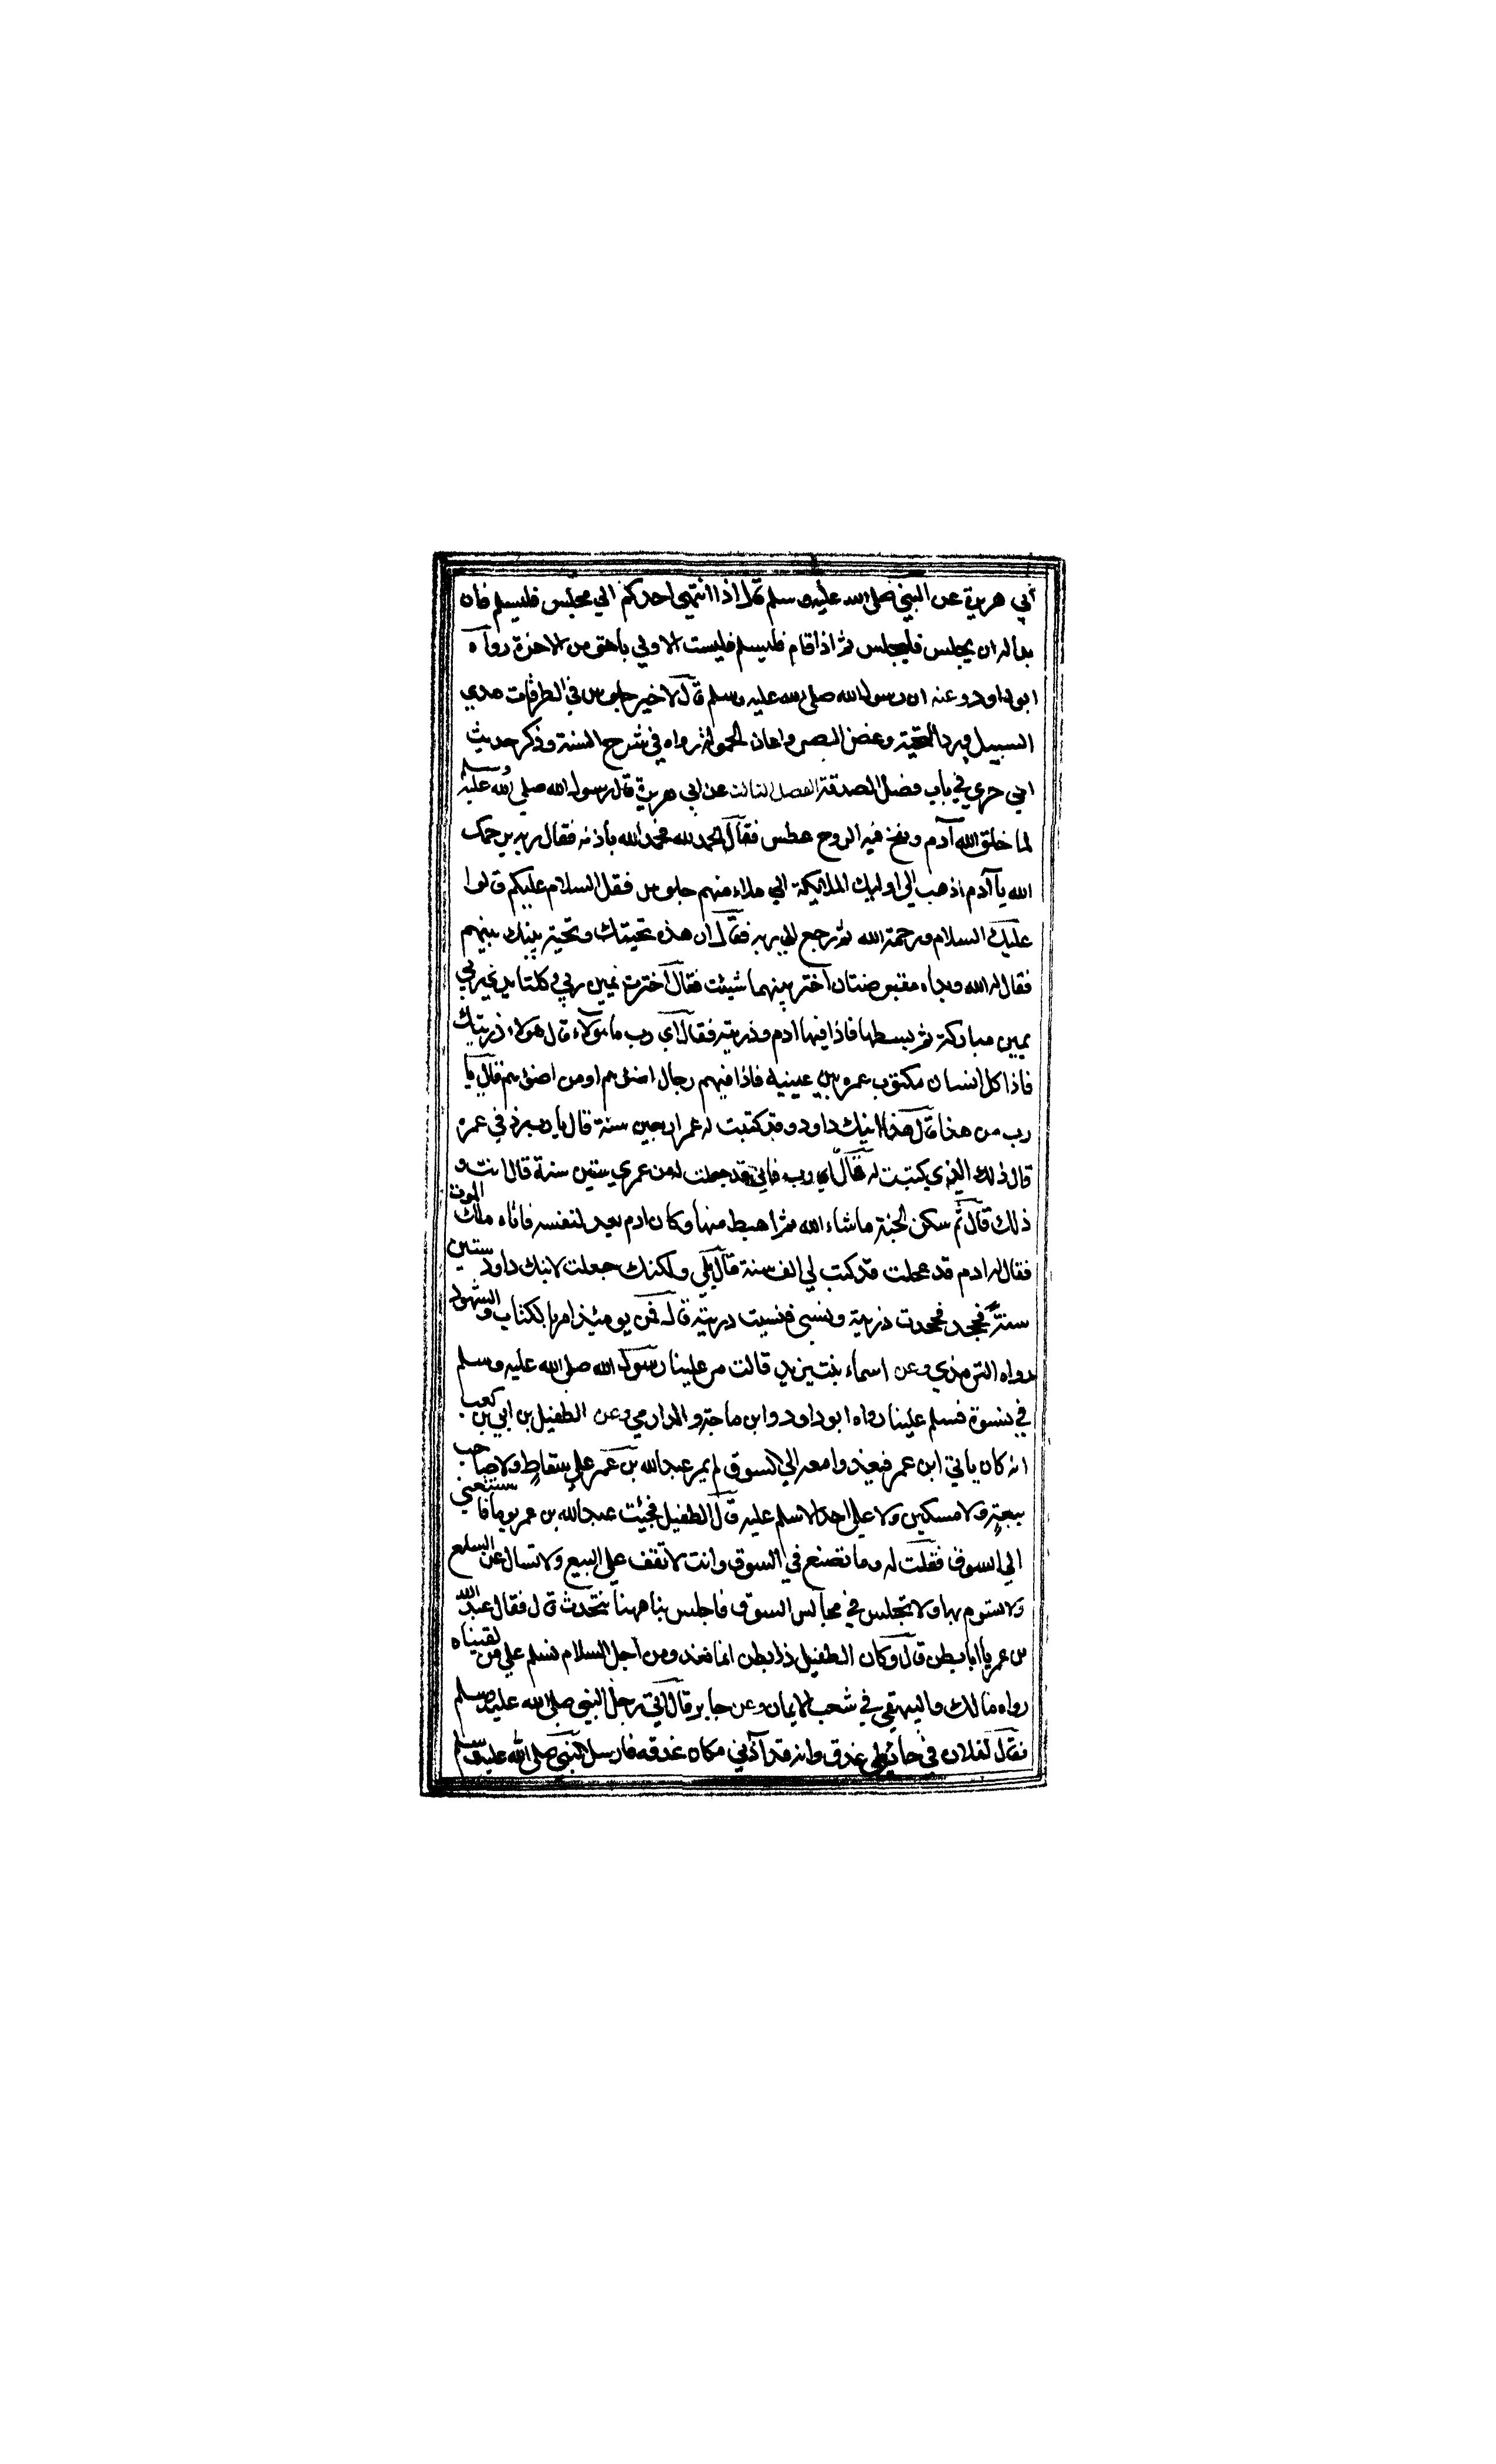 أبي هريرة عن النبي صلى الله عليه وسلم قال اذا انتهى احدكم الي مجلس فليسلم فان
بدا له ان يجلس فليجلس ثم اذا قام فليسلم فليست الاولي بأحق من الاخرة رواه
ابوداود وعنه ان رسول الله صلى الله عليه وسلم قال لا خير جلوس في الطرقات هدي
السبيل ورد التحية وغض البصر واعان الحمولة رواه في شرح السنة وذكر حديث
ابي جري في باب فضل الصدقة الفصل الثالث عن ابي هريرة قال رسول الله صلي الله عليه وسلم
لما خلق الله آدم ونفخ فيه الروح عطس فقال الحمد لله فحمد الله بأذنه فقال ربه يرحمك
الله يا آدم اذهب الي اوليك الملايكة الي ملاء منهم جلوس فقل السلام عليكم قالوا
عليك السلام ورحمة الله ثم رجع الي ربه فقال ان هذه تحيتك وتحية بنيك بينهم
فقال له الله ويداه مقبوضتان اختر ايهما شيئت فقال اخترت يمين ربي وكلتا يدي ربي
يمين مباركة ثم بسطها فاذا فيها ادم وذريته فقال اي رب ما هولاء قال هولاء ذريتك
فاذا كل انسان مكتوب عمره بين عينيه فاذا فيهم رجل اضوئهم او من اضوئهم قال يا
رب من هذا قال هذا ابنك داود وقد كتبت له عمر اربعين سنة قال يا رب زد في عمره
قال ذلك الذي كتبت له قال اي رب فاني قد جعلت له من عمري ستين سنة قال انت و
ذلك قال ثم سكن الجنة ما شاء الله ثم اهبط منها وكان ادم يعد لنفسه فاتاه ملك الموت
فقال له ادم قد عجلت قد كتب لي الف سنة قال بلي ولكنك جعلت لابنك داود ستين
سنة فجحد فجحدت ذريته ونسي فنسيت ذريته قال فمن يومئذ امر بالكتاب والشهود
رواه الترمذي وعن اسماء بنت يزيد قالت مر علينا رسول الله صلى الله عليه وسلم
في نسوة فسلم علينا رواه ابوداود وابن ماجة والدارمي وعن الطفيل بن ابي بن كعب
انه كان ياتي ابن عمر فيغدوا معه الي السوق لم يمر عبدالله بن عمر علي سقاط ولا صاحب
بيعة ولا مسكين ولا علي احد الا سلم عليه قال الطفيل فجئيت عبدالله بن عمر يوما فا ستتبعني
الي السوق فقلت له وما تصنع في السوق وانت لا تقف على البيع ولا تسال عن السلع
ولا تسوم بها ولا تجلس في مجالس السوق فاجلس بنا ههنا نتحدث قال فقال عبدالله
بن عمر يا ابا بطن قال وكان الطفيل ذا بطن انما نغدو من اجل السلام نسلم علي من لقيناه
رواه مالك والبيهقي في شعب الايمان وعن جابر قال اتي رجل النبي صلى الله عليه وسلم
فقال لفلان في حائطي عذق وانه قد آذني مكان عذقه فارسل النبي صلى الله عليه وسلم